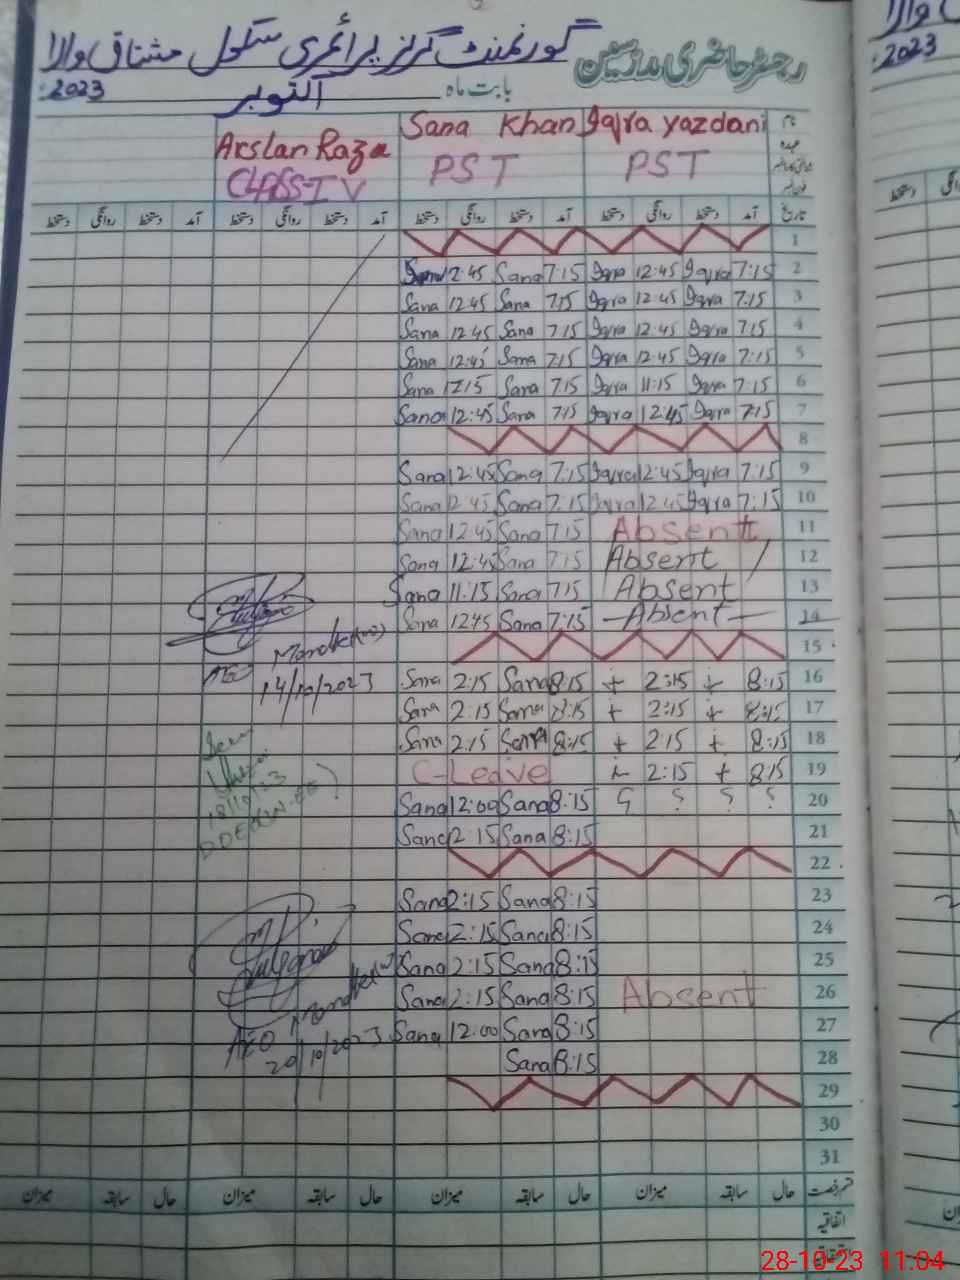 رجسٹر حاضری مدرسین گورنمنٹ گرلز پرائمری سکول مشتاق والا
بابت ماہ اکتوبر 2023:
نام Iqra yazdani Sana Khan Arslan Raza
عہدہ PST PST CLASS-IV
تاریخ آمد دستخط روانگی دستخط آمد دستخط روانگی دستخط آمد دستخط روانگی دستخط آمد دستخط روانگی دستخط
1
Sana 2:45 Sana 7:15 Iqra 12:45 Iqra 7:15 2
Sana 12:45 Sana 7:15 Iqra 12:45 Iqra 7:15 3
Sana 12:45 Sana 7:15 Iqra 12:45 Iqra 7:15 4
Sana 12:45 Sana 7:15 Iqra 12:45 Iqra 7:15 5
Sana Sana 7:15 Iqra 11:15 Iqra 7:15 6
Sana 12:45 Sana 7:15 Iqra 12:45 Iqra 7:15 7
8
Sana 12:45 Sana 7:15 Iqra 12:45 Iqra 7:15 9
Sana 12:45 Sana 7:15 Iqra 12:45 Iqra 7:15 10
Sana 12:45 Sana 7:15 Absent 11
Sana 12:45 Sana 7:15 Absent 12
Sana 11:15 Sana 7:15 Absent 13
Sana 12:45 Sana 7:15 Absent 14
15
AEO
14/10/2023
Sana 2:15 Sana 8:15 + 2:15 + 8:15 16
Sana 2:15 Sana 8:15 + 2:15 + 8:15 17
Sana 2:15 Sana 8:15 + 2:15 + 8:15 18
C-Leave + 2:15 + 8:15 19
Sana 12:00 Sana 8:15 ? ? ? ? 20
18/10/23
Sana 2:15 Sana 8:15 21
22
Sana 2:15 Sana 8:15 23
Sana 2:15 Sana 8:15 24
Sana 2:15 Sana 8:15 25
Sana 2:15 Sana 8:15 Absent 26
Sana 12:00 Sana 8:15 27
AEO
20/10/2023
Sana 8:15 28
29
30
31
قسم رخصت حال سابقہ میزان حال سابقہ میزان حال سابقہ میزان حال سابقہ میزان
اتفاقیہ
2023
28-10-23 11:04